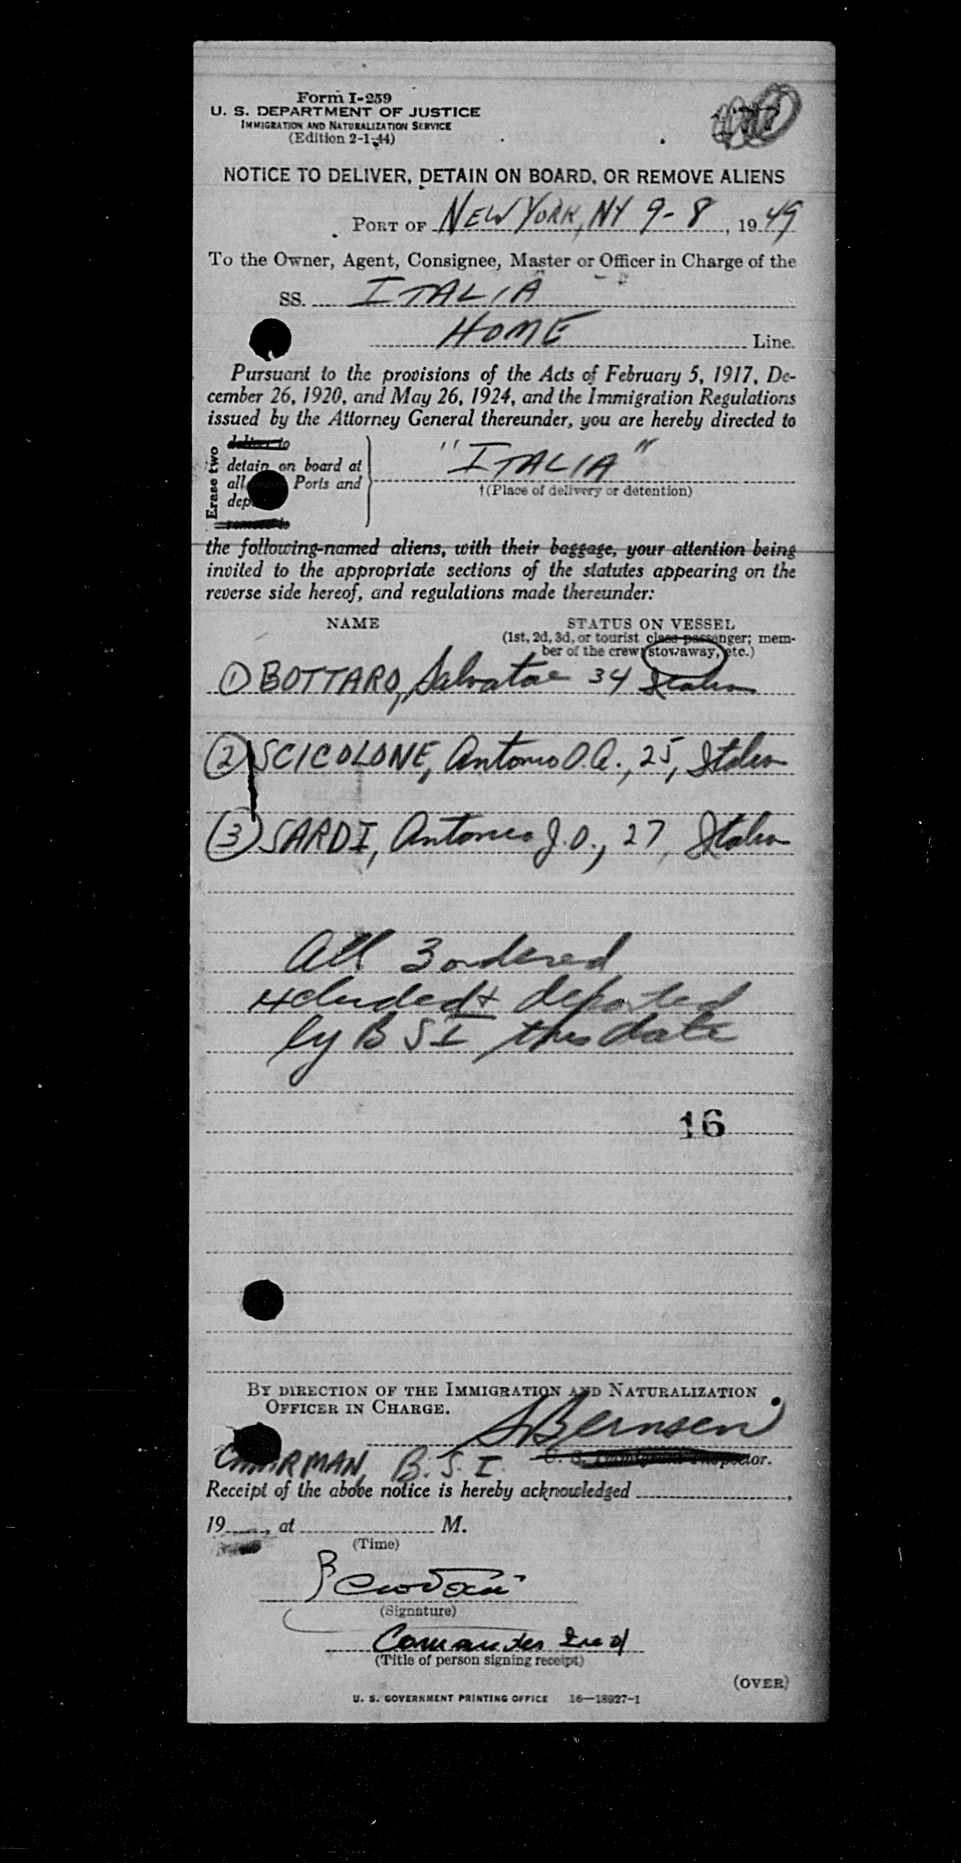 Form I-259
U. S. DEPARTMENT OF JUSTICE
IMMIGRATION AND NATURALIZATION SERVICE
(Edition 2-1-44)
NOTICE TO DELIVER, DETAIN ON BOARD, OR REMOVE ALIENS
PORT OF NEW YORK, NY 9-8, 1949
To the Owner, Agent, Consignee, Master or Officer in Charge of the
SS. ITALIA
HOME Line.
Pursuant to the provisions of the Acts of February 5, 1917, De-
cember 26, 1920, and May 26, 1924, and the Immigration Regulations
issued by the Attorney General thereunder, you are hereby directed to
Erase two
deliver to
detain on board at
all Ports and
"ITALIA"
†(Place of delivery or detention)
remove to
the following-named aliens, with their baggage, your attention being
invited to the appropriate sections of the statutes appearing on the
reverse side hereof, and regulations made thereunder:
NAME STATUS ON VESSEL
(1st, 2d, 3d, or tourist class passenger; mem-
ber of the crew, stowaway, etc.)
① BOTTARO, Salvatore 34 Italian
② SCICOLONE, Antonio D.A., 25, Italian
③ SARDI, Antonio J.O., 27, Italian
All 3 ordered
xcluded & deported
by B S I this date
16
BY DIRECTION OF THE IMMIGRATION AND NATURALIZATION
OFFICER IN CHARGE.
S Bernsen
CHAIRMAN, B.S.I. U. S. Immigrant Inspector.
Receipt of the above notice is hereby acknowledged
19 , at M.
(Time)
(Signature)
(Title of person signing receipt)
(OVER)
U. S. GOVERNMENT PRINTING OFFICE 16—18927-1